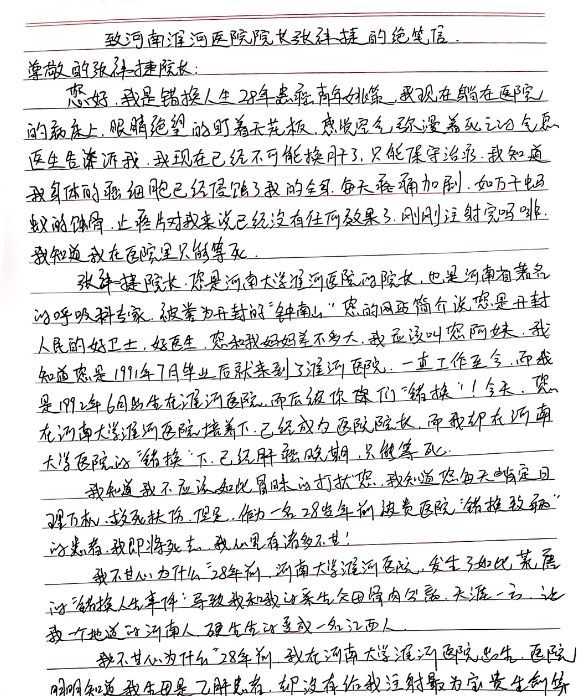 致河南淮河医院院长张祥捷的绝笔信.
尊敬的张祥捷院长:
您好,我是错换人生28年患癌青年姚策,我现在躺在医院
的病床上,眼睛绝望的盯着天花板,感觉空气弥漫着死亡的气息
医生告诉我,我现在已经不可能换肝了,只能保守治疗,我知道
我身体的癌细胞已经侵蚀了我的全身,每天疼痛加剧,如万千蚂
蚁的蚀骨,止疼片对我来说已经没有任何效果了,刚刚注射完吗啡,
我知道我在医院里只能等死.
张祥捷院长,您是河南大学淮河医院的院长,也是河南省著名
的呼吸科专家,被誉为开封的"钟南山"您的网站简介说您是开封
人民的好卫士,好医生,您和我妈妈差不多大,我应该叫您阿姨,我
知道您是1991年7月毕业后就来到了淮河医院,一直工作至今,而我
是1992年6月出生在淮河医院,而后被你院们"错换"!今天,您
在河南大学淮河医院培养下,已经成为医院院长,而我却在河南
大学医院的"错换"下,已经肝癌晚期,只能等死.
我知道我不应该如此冒昧的打扰您,我知道您每天肯定日
理万机,救死扶伤,但是,作为一名28岁年前被贵医院"错换致病"
的患者,我即将死去,我心里有诸多不甘!
我不甘心为什么"28年前,河南大学淮河医院,发生了如此荒唐
的"错换人生事件"导致我和我的亲生父母骨肉分离,天涯一方,让
我一个地道的河南人,硬生生的变成一名江西人.
我不甘心为什么"28年前,我在河南大学淮河医院出生,医院
明明知道我生母是乙肝患者,却没有给我注射最为宝贵生的